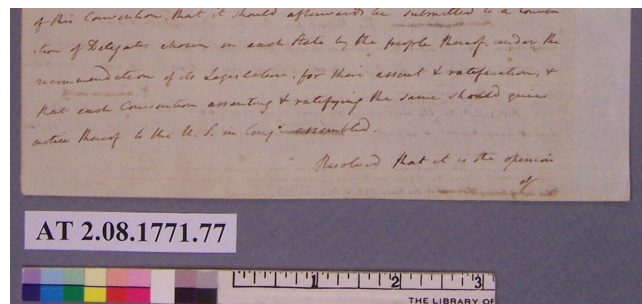 of this Convention, that it should afterwards be submitted to a Conven
tion of Delegates chosen in each State by the people thereof, under the
recommendation of its Legislature, for their assent & ratification, &
that each Convention assenting & ratifying the same should give
notice thereof to the U. S. in Cong.s assembled.
Resolved that it is the opinion
of
AT 2.08.1771.77
1 2 3
THE LIBRARY OF